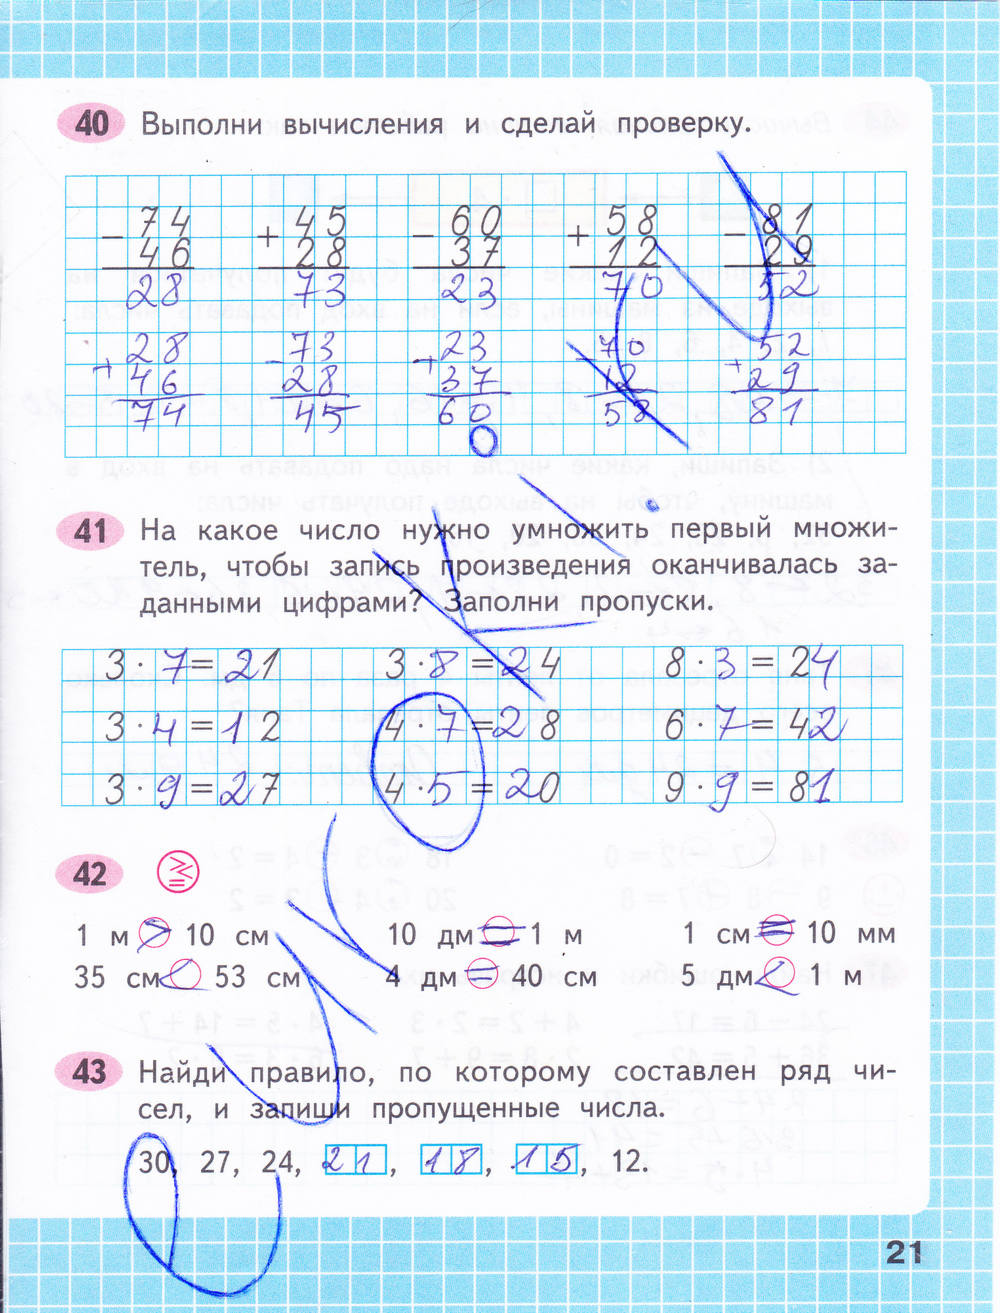 40 Выполни вычисления и сделай проверку.
− 74 + 45 − 60 + 58 − 81
46 28 37 12 29
28 73 23 70 52
+ 28 − 73 + 23 − 70 + 52
46 28 37 12 29
74 45 60 58 81
41 На какое число нужно умножить первый множи-
тель, чтобы запись произведения оканчивалась за-
данными цифрами? Заполни пропуски.
3 · 7 = 21 3 · 8 = 24 8 · 3 = 24
3 · 4 = 12 4 · 7 = 28 6 · 7 = 42
3 · 9 = 27 4 · 5 = 20 9 · 9 = 81
42
1 м > 10 см 10 дм = 1 м 1 см = 10 мм
35 см < 53 см 4 дм = 40 см 5 дм < 1 м
43 Найди правило, по которому составлен ряд чи-
сел, и запиши пропущенные числа.
30, 27, 24, 21, 18, 15, 12.
21